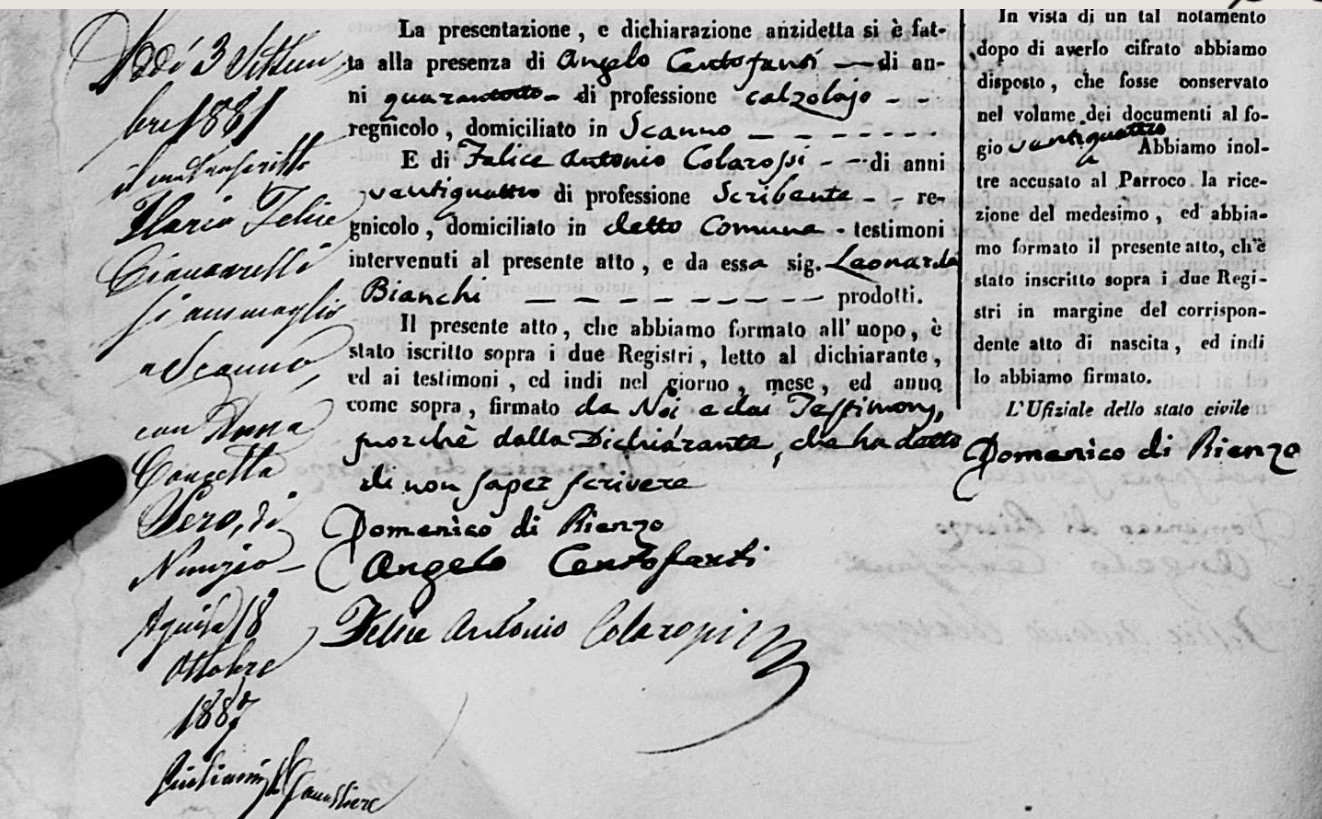 Addì 3 Settem
bre 1881
il controscritto
Ilario Felice
Ciancarelli
si ammogliò
a Scanno,
con Anna
Concetta
Sero, di
Nunzio –
Aquila 18
Ottobre
1887
La presentazione, e dichiarazione anzidetta si è fat-
ta alla presenza di Angelo Centofanti — di an-
ni quarantotto – di professione calzolajo - -
regnicolo, domiciliato in Scanno — — — — — — —
E di Felice Antonio Colarossi - - di anni
ventiquattro di professione Scribente - - re-
gnicolo, domiciliato in detto Comune - testimoni
intervenuti al presente atto, e da essa sig. Leonarda
Bianchi — — — — — — — — — prodotti.
Il presente atto, che abbiamo formato all'uopo, è
stato iscritto sopra i due Registri, letto al dichiarante,
ed ai testimoni, ed indi nel giorno, mese, ed anno
come sopra, firmato da Noi e dai Testimonj,
fuorchè dalla Dichiarante, che ha detto
di non saper scrivere
Domenico di Rienzo
Angelo Centofanti
Felice Antonio Colarossi
In vista di un tal notamento
dopo di averlo cifrato abbiamo
disposto, che fosse conservato
nel volume dei documenti al fo-
gio ventiquattro Abbiamo inol-
tre accusato al Parroco la rice-
zione del medesimo, ed abbia-
mo formato il presente atto, ch'è
stato inscritto sopra i due Regi-
stri in margine del corrispon-
dente atto di nascita, ed indi
lo abbiamo firmato.
L'Ufiziale dello stato civile
Domenico di Rienzo